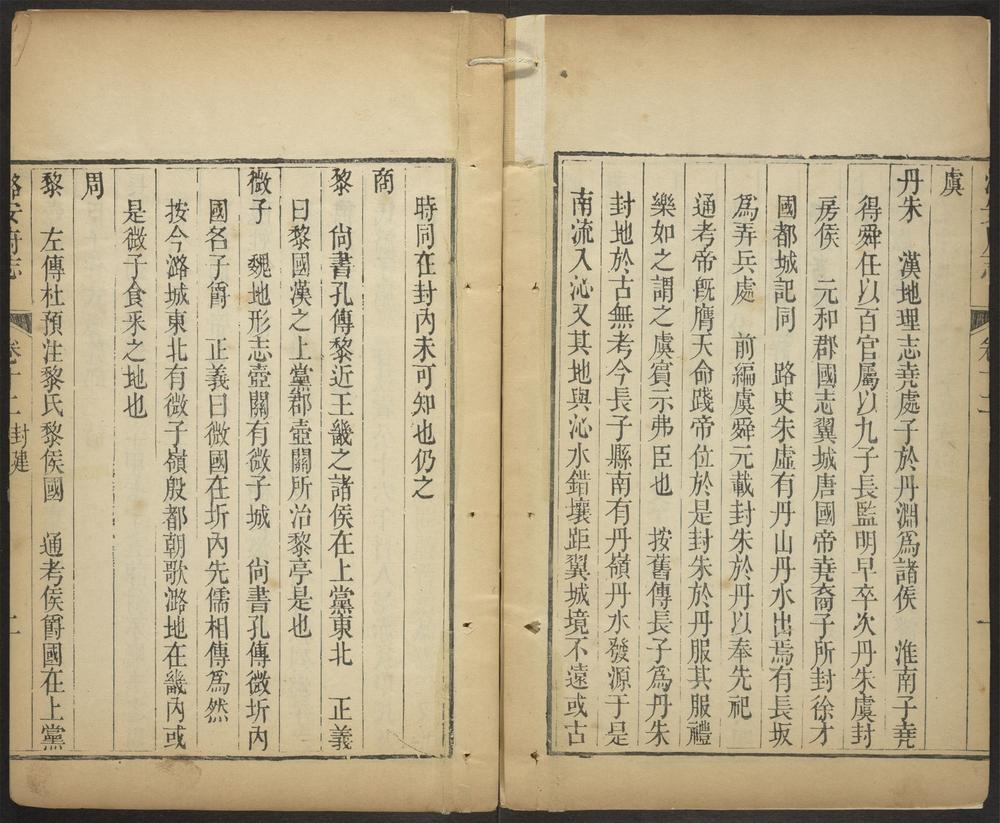 虞
丹朱　漢地理志堯處子於丹淵爲諸侯　淮南子堯
得舜任以百官屬以九子長監明早卒次丹朱虞封
房侯　元和郡國志翼城唐國帝堯裔子所封徐才
國都城記同　路史朱虛有丹山丹水出焉有長坂
爲弄兵處　前編虞舜元載封朱於丹以奉先祀
通考帝旣膺天命踐帝位於是封朱於丹服其服禮
樂如之謂之虞賓示弗臣也　按舊傳長子爲丹朱
封地於古無考今長子縣南有丹嶺丹水發源于是
南流入沁又其地與沁水錯壤距翼城境不遠或古
時同在封內未可知也仍之
商
黎　尙書孔傳黎近王畿之諸侯在上黨東北　正義
曰黎國漢之上黨郡壺關所治黎亭是也
微子　魏地形志壺關有微子城　尙書孔傳微圻內
國名子爵　正義曰微國在圻內先儒相傳爲然
按今潞城東北有微子嶺殷都朝歌潞地在畿內或
是微子食采之地也
周
黎　左傳杜預注黎氏黎侯國　通考侯爵國在上黨
潞安府志　卷十二　封建　二